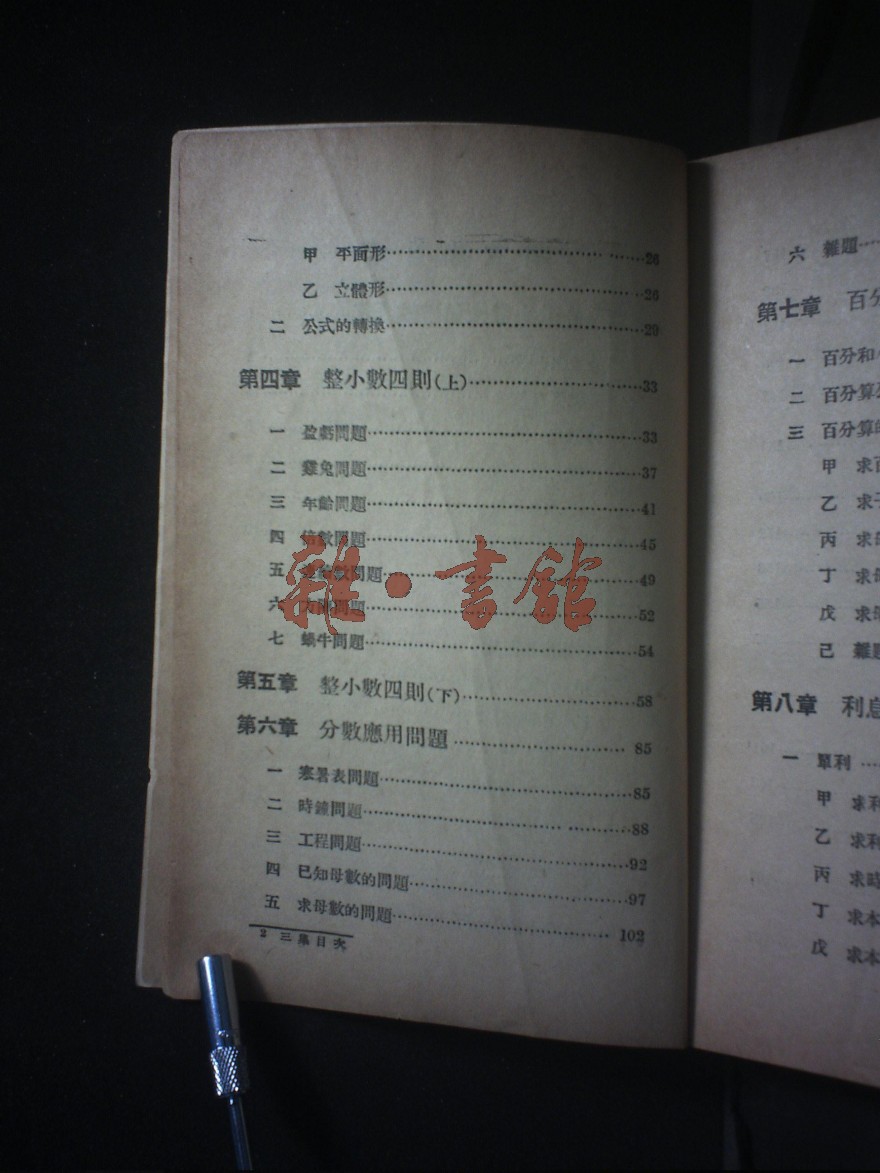 甲 平面形 26
乙 立體形 26
二 公式的轉換 29
第四章 整小數四則(上) 33
一 盈虧問題 33
二 雞兔問題 37
三 年齡問題 41
四 倍數問題 45
五 問題 49
六 方陣問題 52
七 蝸牛問題 54
第五章 整小數四則(下) 58
第六章 分數應用問題 85
一 寒暑表問題 85
二 時鐘問題 88
三 工程問題 92
四 已知母數的問題 97
五 求母數的問題 102
2 三集目次
雜·書館
六 雜題
第七章 百分
一 百分和
二 百分算
三 百分算的
甲 求百
乙 求子
丙 求
丁 求母
戊 求
己 雜題
第八章 利息
一 單利
甲 求利
乙 求利
丙 求時
丁 求本
戊 求本